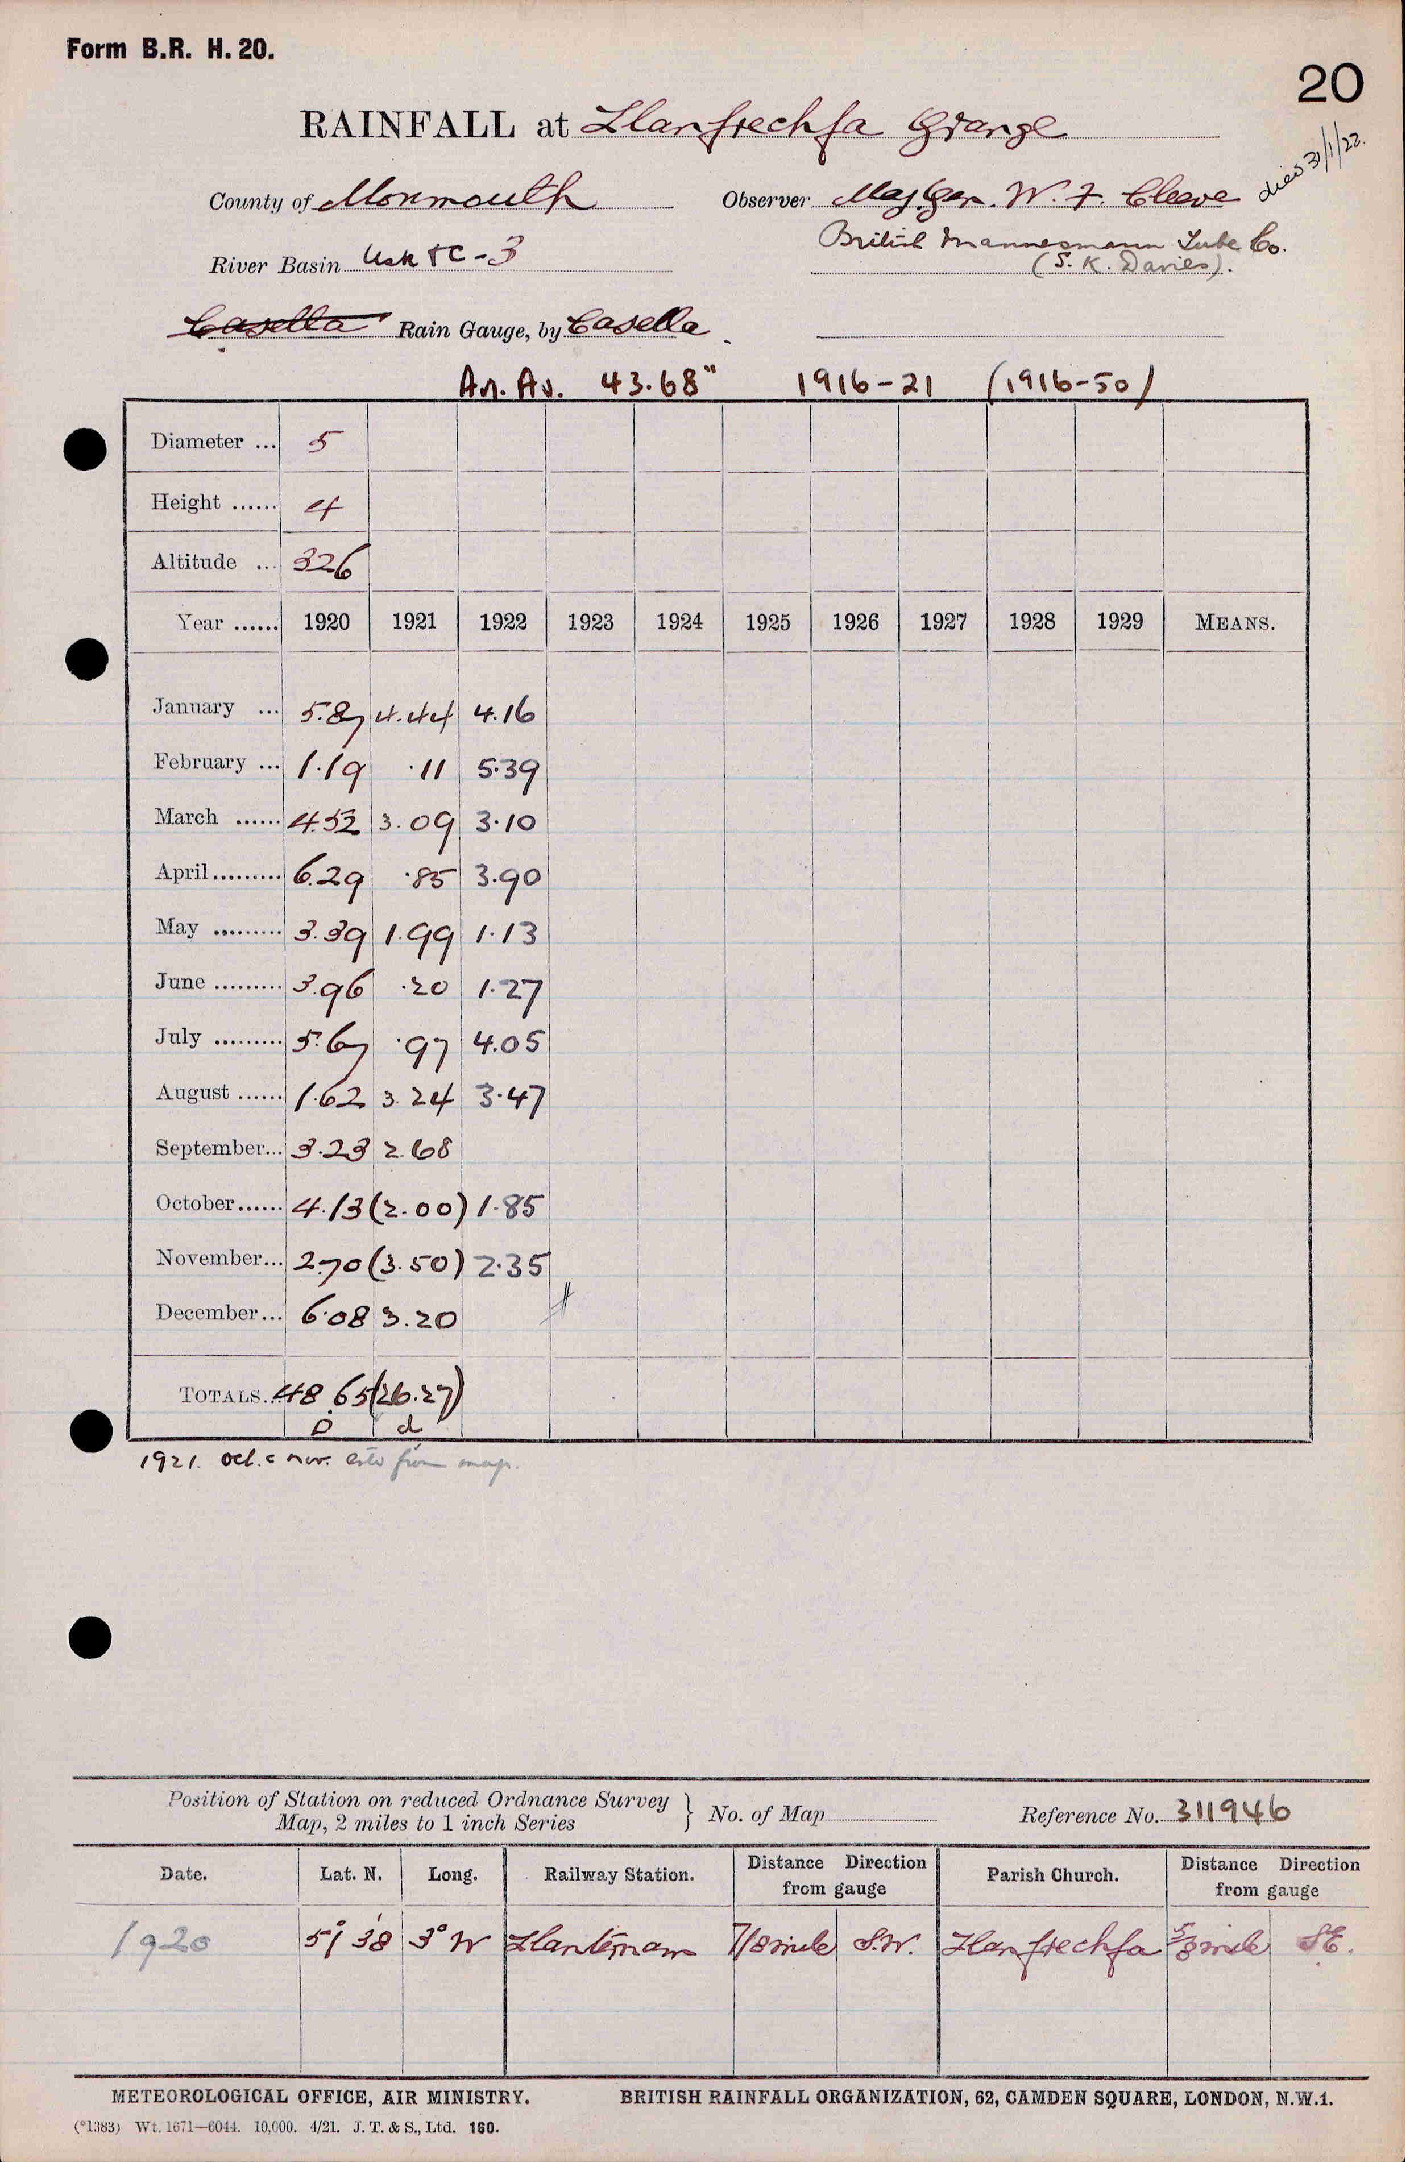 Form B.R. H. 20.
20
RAINFALL at Llanfrechfa Grange
died 31/1/22.
County of Monmouth Observer Maj. Gen. W. F. Cleeve
British Mannesmann Tube Co.
River Basin Usk & C - 3 (S. K. Davies).
Casella Rain Gauge, by Casella
An. Av. 43.68" 1916-21 (1916-50)
Diameter ... 5
Height ...... 4
Altitude ... 326
Year ...... 1920 1921 1922 1923 1924 1925 1926 1927 1928 1929 MEANS.
January ... 5.87 4.44 4.16
February ... 1.19 .11 5.39
March ...... 4.52 3.09 3.10
April......... 6.29 .85 3.90
May ......... 3.39 1.99 1.13
June ......... 3.96 .20 1.27
July ......... 5.67 .97 4.05
August ...... 1.62 3.24 3.47
September... 3.23 2.68
October...... 4.13 (2.00) 1.85
November... 2.70 (3.50) 2.35
December... 6.08 3.20
TOTALS... 48.65 (26.27)
d
1921. Oct. & Nov. ests from map.
Position of Station on reduced Ordnance Survey
Map, 2 miles to 1 inch Series } No. of Map Reference No. 311946
Date. Lat. N. Long. Railway Station. Distance Direction from gauge Parish Church. Distance Direction from gauge
1920 51° 38' 3° W Llantarnam 7/8 mile S.W. Llanfrechfa 5/8 mile SE.
METEOROLOGICAL OFFICE, AIR MINISTRY. BRITISH RAINFALL ORGANIZATION, 62, CAMDEN SQUARE, LONDON, N.W.1.
(*1383) Wt. 1671—6044. 10,000. 4/21. J. T. & S., Ltd. 160.